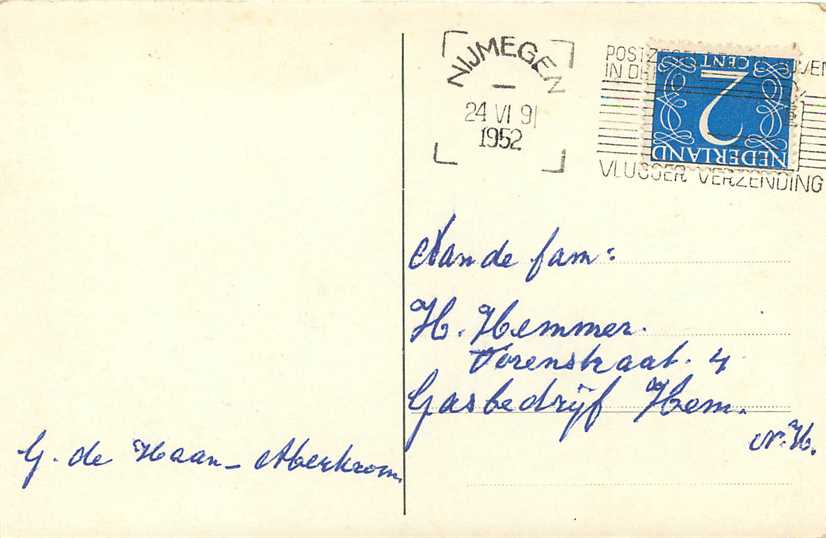 NIJMEGEN
24 VI 9
1952
POSTZEGEL
IN DE
VLUGGER VERZENDING
2
CENT
NEDERLAND
Aan de fam:
H. Hemmer.
Torenstraat. 4
Gasbedrijf Hem.
N.H.
G. de Haan - Aberkrom.